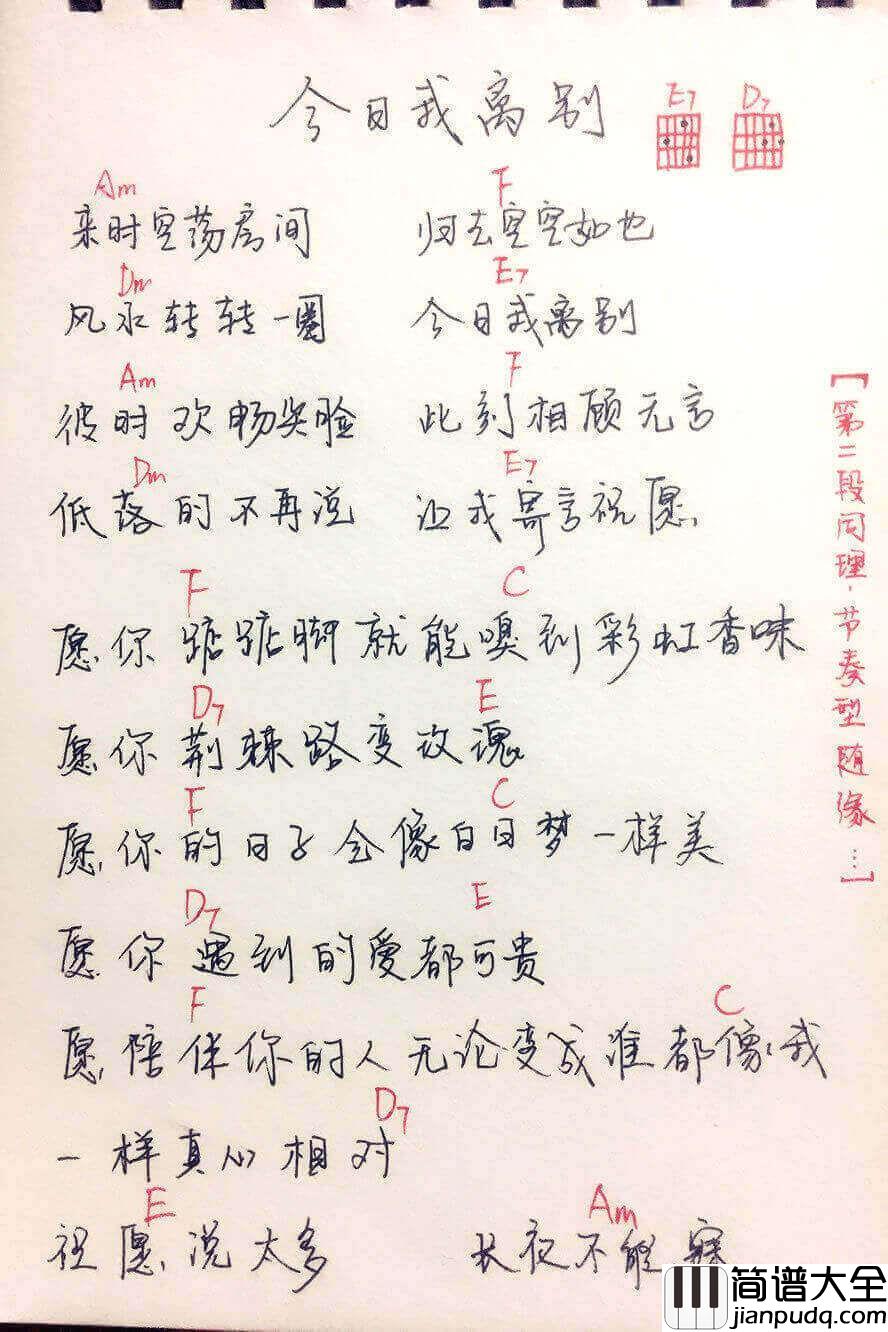 今日我离别 E7 D7
Am F
来时空荡房间 归去空空如也
Dm E7
风水转转一圈 今日我离别
Am F
彼时欢畅笑脸 此刻相顾无言
Dm E7
低落的不再说 让我寄言祝愿
F C
愿你踮踮脚就能嗅到彩虹香味
D7 E
愿你荆棘路变玫瑰
F C
愿你的日子会像白日梦一样美
D7 E
愿你遇到的爱都可贵
F C
愿陪伴你的人无论变成谁都像我
D7
一样真心相对
E Am
祝愿说太多 长夜不能寐
【第二段同理·节奏型随缘…】
简谱大全
jianpudq.com